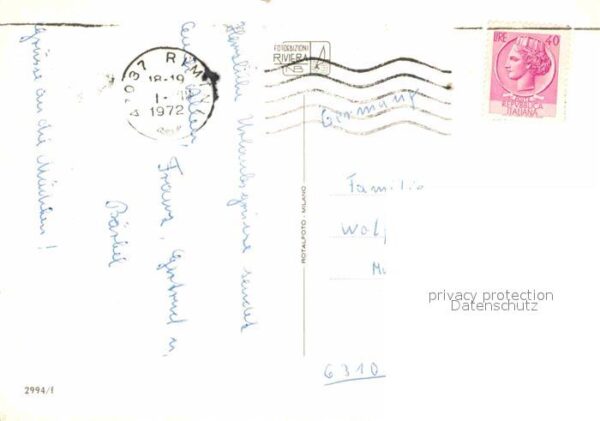 Herzliche Urlaubsgrüsse sendet
Euch Allen, Franz, Gertrud u.
Bärbel
Grüsse an die Mädchen!
47037 RIMINI
18-19
1-
1972
FOTOEDIZIONI
RIVIERA
LIRE 40
REPUBBLICA
ITALIANA
Germany
Familie
Wolf
6310
ROTALFOTO - MILANO
privacy protection
Datenschutz
2994/f